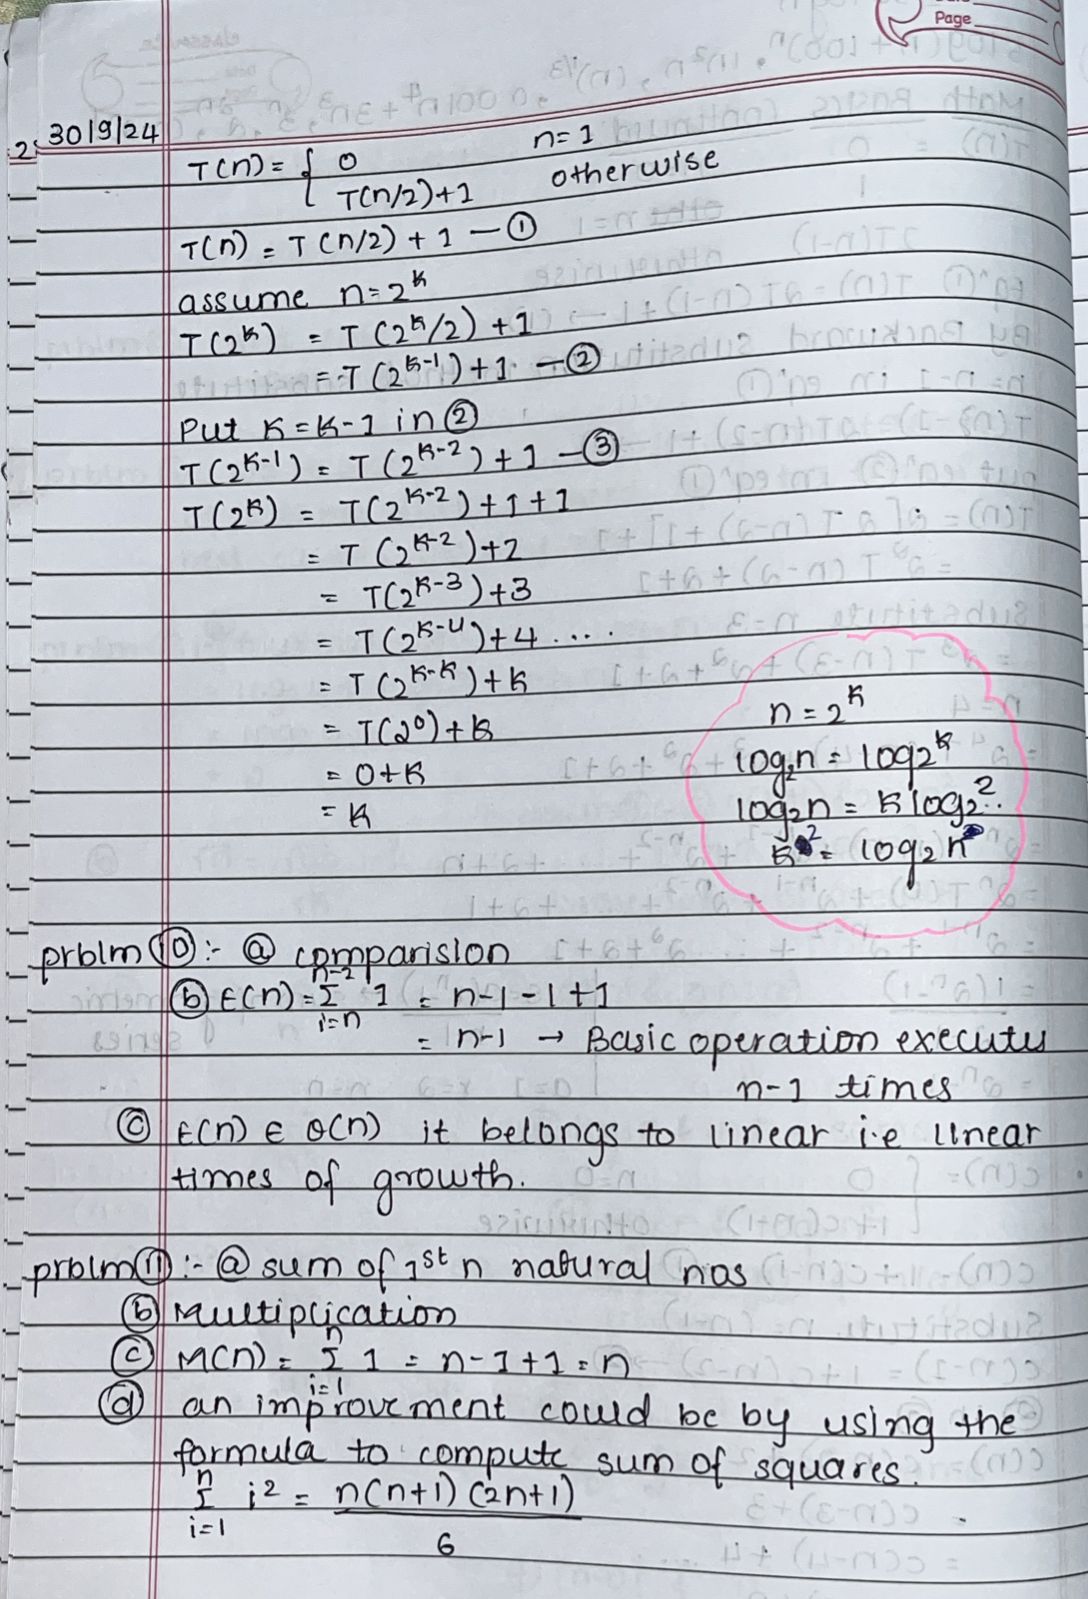 Page
30/9/24
T(n) = { 0 n = 1
T(n/2)+1 otherwise
T(n) = T(n/2) + 1 — ①
assume n = 2^k
T(2^k) = T(2^k/2) + 1
= T(2^k-1) + 1 — ②
Put k = k-1 in ②
T(2^k-1) = T(2^k-2) + 1 — ③
T(2^k) = T(2^k-2) + 1 + 1
= T(2^k-2) + 2
= T(2^k-3) + 3
= T(2^k-4) + 4 ....
= T(2^k-k) + k
= T(2^0) + k
= 0 + k
= k
n = 2^k
log₂n = log2^k
log₂n = k log₂2
k = log₂n
prblm ⑩ :- ⓐ comparision
ⓑ t(n) = n-2 Σ i=n 1 = n-1-1+1
= n-1 → Basic operation executes
n-1 times
ⓒ t(n) ∈ θ(n) it belongs to linear i.e linear
times of growth.
prblm ⑪ :- ⓐ sum of 1st n natural nos
ⓑ Multiplication
ⓒ M(n) = n Σ i=1 1 = n-1+1 = n
ⓓ an improvement could be by using the
formula to compute sum of squares.
n Σ i=1 i² = n(n+1)(2n+1)
6